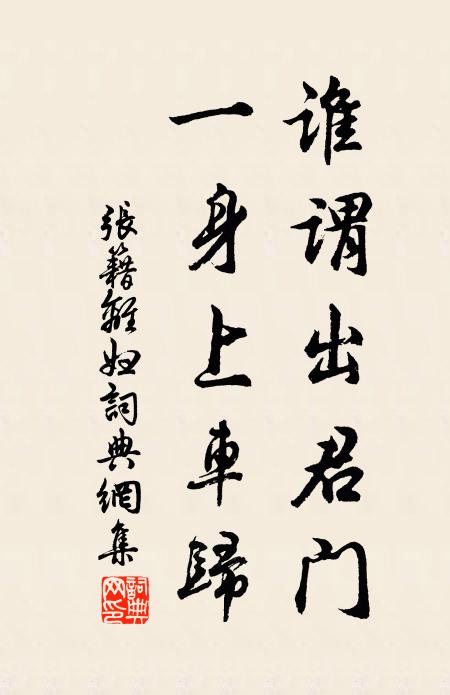 谁謂出君门
一身上車歸
張籍離婦詞典網集
詞典
网印